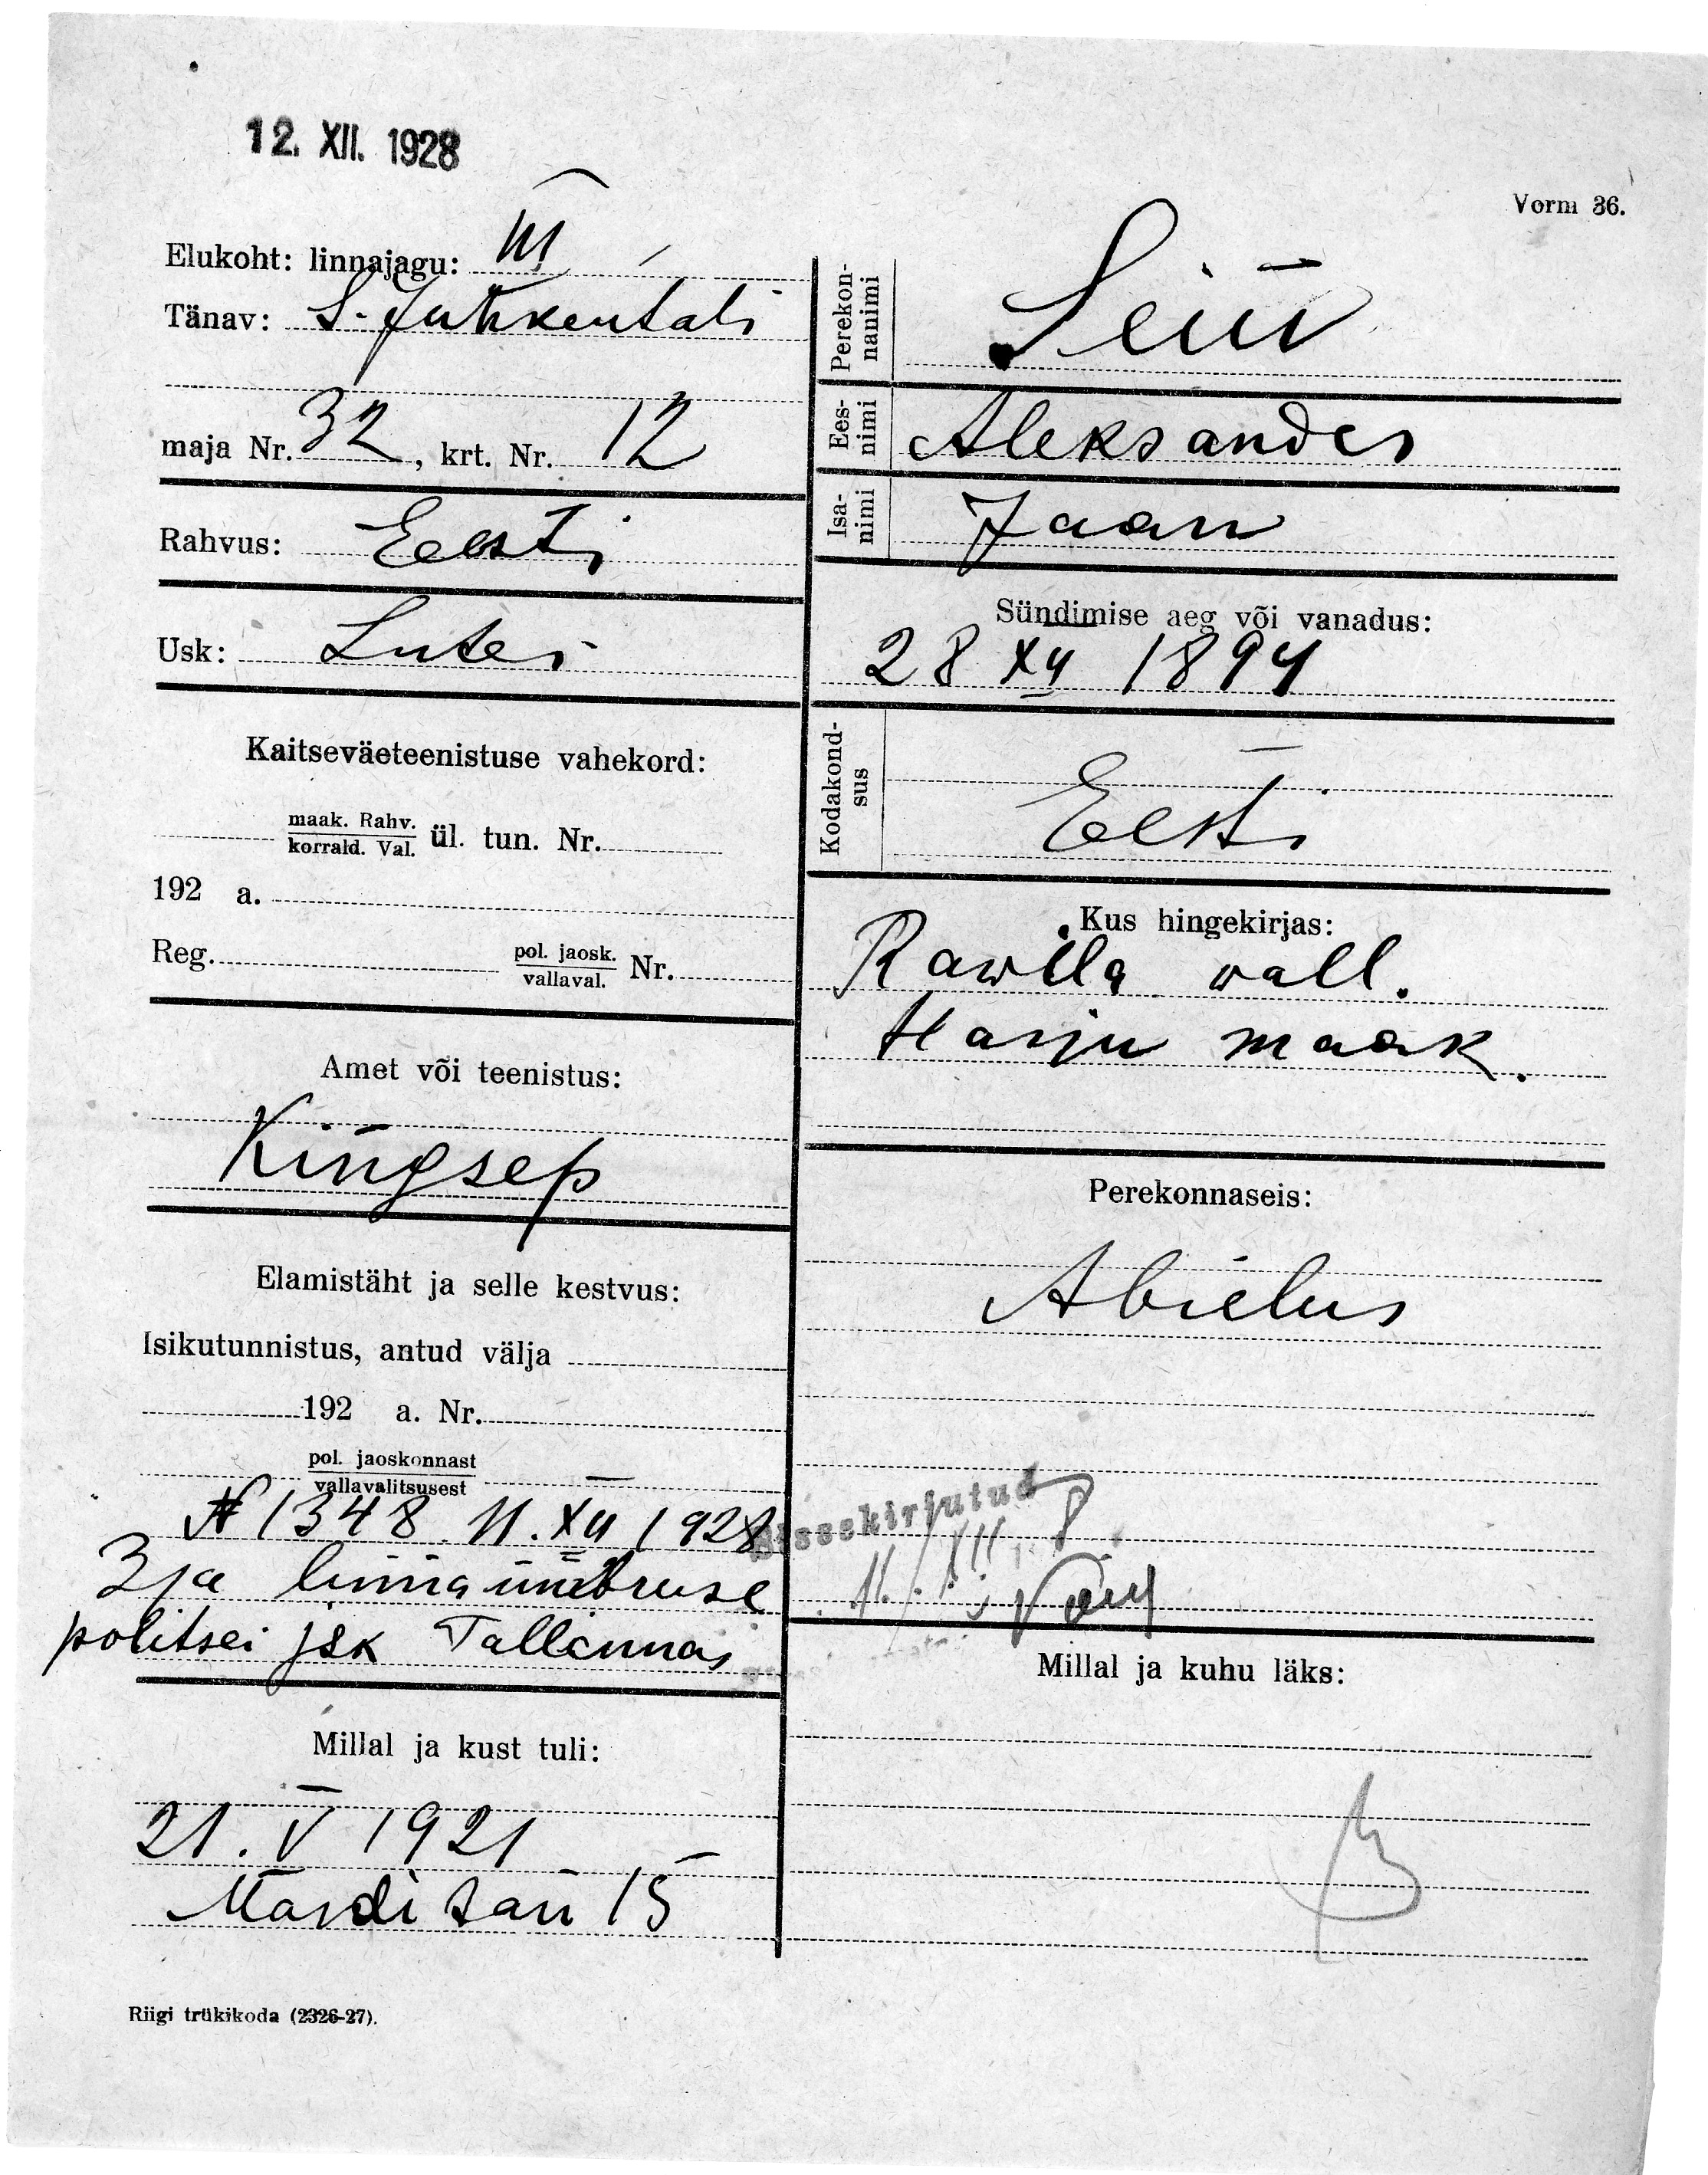 12. XII. 1928
Vorm 36.
Elukoht: linnajagu: III
Tänav: S. Juhkentali
maja Nr. 32, krt. Nr. 12
Rahvus: Eesti
Usk: Luter
Kaitseväeteenistuse vahekord:
maak. Rahv.
korrald. Val. ül. tun. Nr.
192 a.
Reg. pol. jaosk.
vallaval. Nr.
Amet või teenistus:
Kingsep
Elamistäht ja selle kestvus:
Isikutunnistus, antud välja
192 a. Nr.
pol. jaoskonnast
vallavalitsusest
№ 1348. 11. XII 1928
3 ja linna ümbruse
politsei jsk Tallinnas
Millal ja kust tuli:
21. V 1921
Mardi tän 15
Perekon-
nanimi
Ees-
nimi Aleksander
Isa-
nimi Jaan
Sündimise aeg või vanadus:
28 XII 1894
Kodakond-
sus Eesti
Kus hingekirjas:
Rawila wall.
Harju maak.
Perekonnaseis:
Abielus
Sissekirjutud
11/XII
Millal ja kuhu läks:
Riigi trükikoda (2326-27).